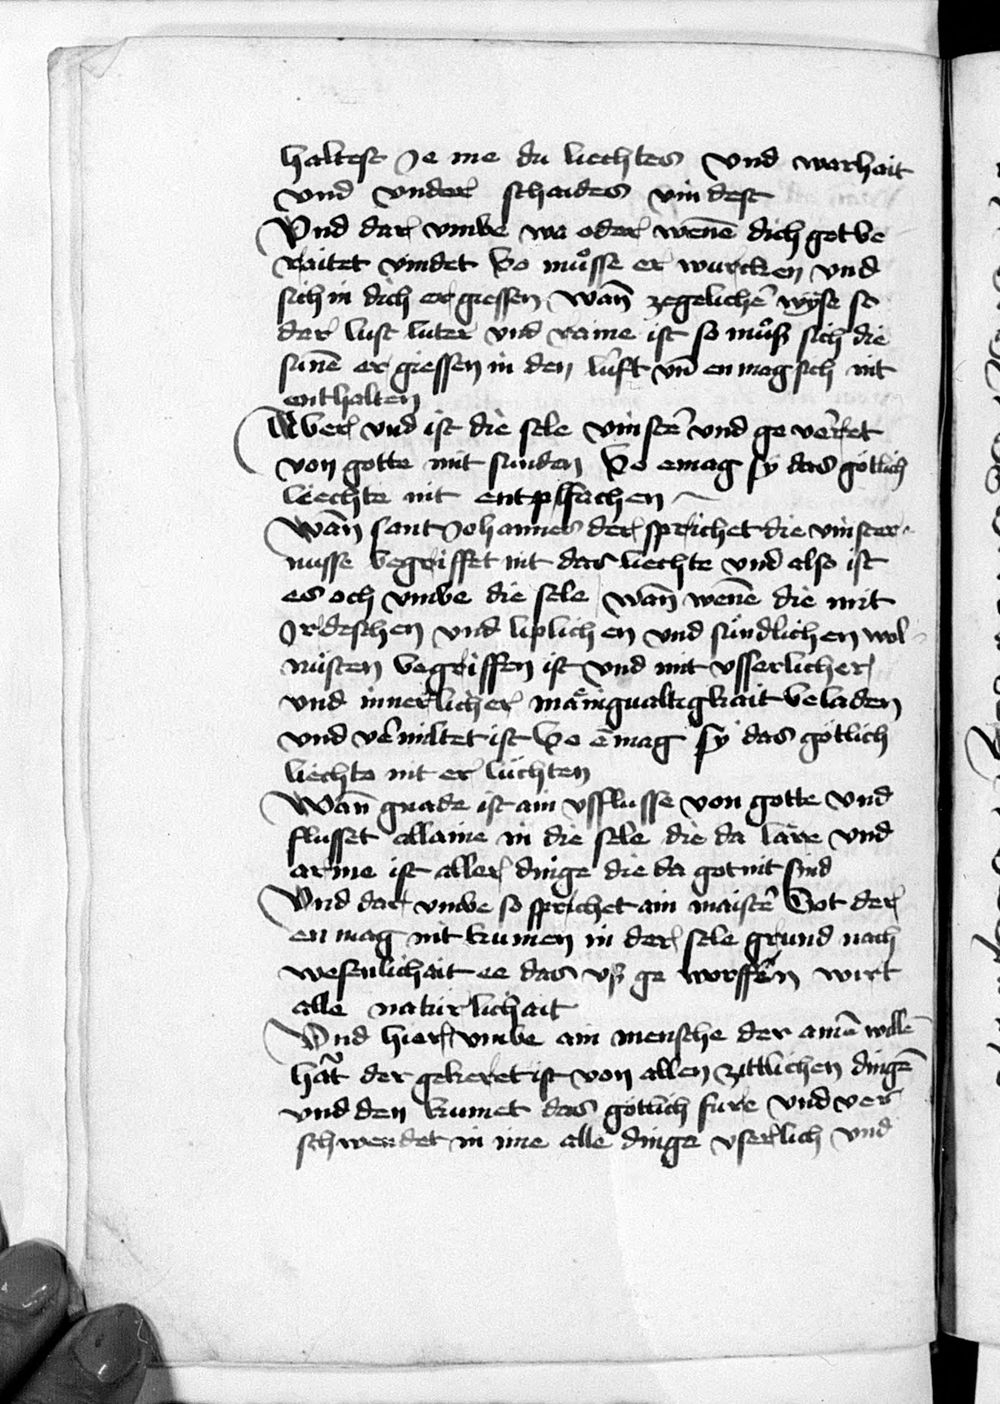 haltest Je me du liechtes vnd warhait
vnd vnder schaides vin dest
Vnd dar vmbe wa oder wenē dich got be
raitet vindet So muͦsse er wurcken vnd
sich in dich er giessen wañ zegelichē wyse so
der lust luter vnd raine ist so muͦß sich die
sunē er giessen in den lúft vñ en mag sich nit
enthalten
Aber vnd ist die sele vinstē vnd ge verret
von gotte mit sunden So emag sy das götlich
liechte nit entpfachen
Wañ sant Johannes der sprichet die vinster
nusse begriffet nit das liechte vnd also ist
es och vmbe die sele wañ wenē die mit
Jrdeschen vnd liplich en vnd súndlichen wol
nústen begriffen ist vnd mit vsserlicher
vnd innerlicher mänigualtigkait beladen
vnd vermiltet ist So ēmag sy das götlich
liechte nit er lúchten
Wañ gnade ist ain vsflusse von gotte vnd
flusset allaine in die sele die da läre vnd
arme ist aller dinge die da got nit sind
Vnd dar vmbe so sprichet ain maistē Got der
en mag nit kumen in der sele grund nach
wesenlichait ee das vß ge worffen wirt
alle natúrlichait
Vnd hier vmbe ain mensche der ainē willē
hät der gekeret ist von allen zittlichen dingē
vnd den kumet das götlich fure vnd ver
schwendet in ime alle dinge vserlich vnd